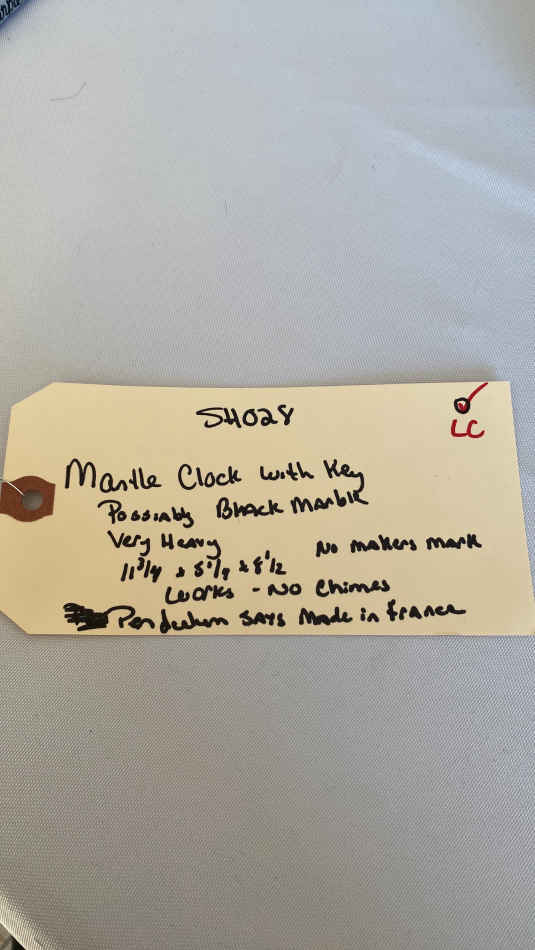 SH028
LC
Mantle Clock with Key
Possiably Black Marble
Very Heavy
No makers mark
11 3/4 x 5 1/4 x 8 1/2
Works - No Chimes
Pendulum SAYS Made in France